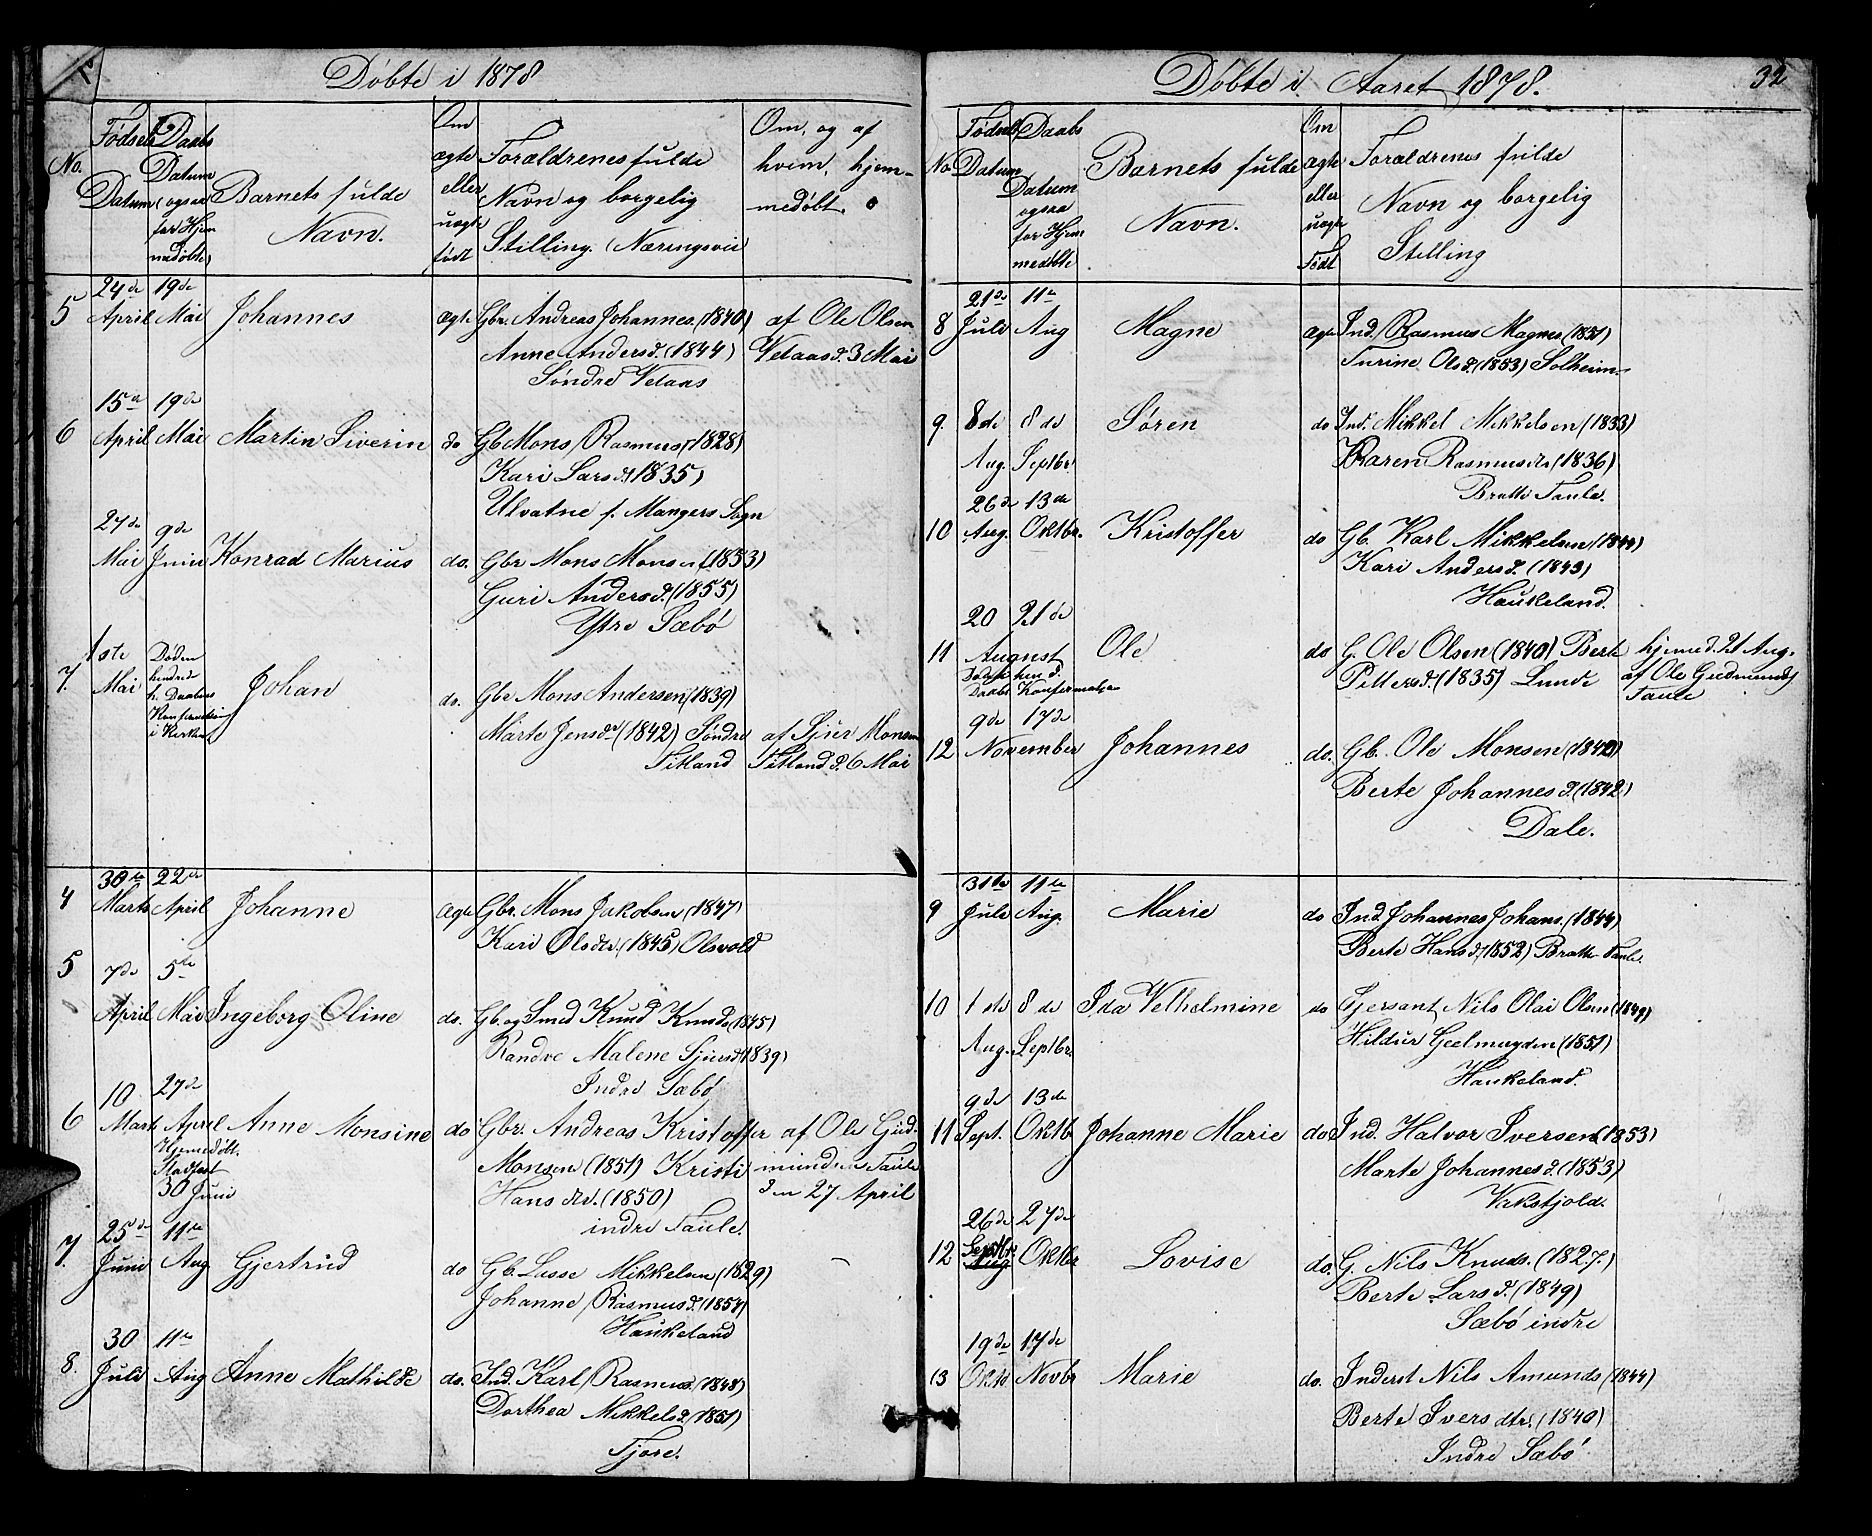 Døbte i 1878
No.
Fødsels Datum
Daabs Datum (ogsaa for Hjemmedøbte)
Barnets fulde Navn.
Om ægte eller uægte født
Forældrenes fulde Navn og borgelig Stilling. (Næringsvei
Om, og af hvem, hjemmedøbt.
5 24de April 19de Mai Johannes ægte Gbr. Andreas Johannes. (1840) af Ole Olsen
Anne Andersd. (1844) Vetaas d. 3 Mai
Søndre Vetaas
6 15de April 19de Mai Martin Siverin do Gb Mons Rasmus (1828)
Kari Larsd. (1835)
Ulvatne f. Mangers Sogn
27de Mai 9de Juni Konrad Marius do. Gbr Mons Monsen (1853)
Guri Andersd. (1855)
Ytre Sæbø
7. 1ste Mai Døden hindrede Johan do. Gbr Mons Andersen (1839)
h. Daabens
i Kirken
Marte Jensd. (1842) Søndre af Sjur Monsen
Titland Titland d. 6 Mai
4 30te Marts 22de April Johanne ægte Gbr. Mons Jakobsen (1847)
Kari Olsdtr. (1845) Olsvold
5 7de April 5te Mai Ingeborg Oline do. Gb. og Smed Knud Knuds (1845)
Randve Malene Sjursd. (1839)
Indre Sæbø
6 10 Marts 27de April Anne Monsine do Gbr. Andreas Kristoffer af Ole Gud-
Hjemedøbt. Monsen (1851) Kristi mundsen Taule
Stadfæst 30 Juni Hans dtr. (1850) den 27 April
indre Taule.
7. 25de Juni 11te Aug Gjertrud do Gb. Lasse Mikkelsen (1829)
Johanne Rasmusd. (1854)
Haukeland
8. 30 Juli 11te Aug Anne Mathilde do. Ind. Karl Rasmus. (1848)
Dorthea Mikkelsd. (1851)
Tjore.
Døbte i Aaret 1878.
32
No.
Fødsels Datum
Daabs Datum ogsaa for Hjemmedøbte
Barnets fulde Navn.
Om ægte eller uægte Født
Forældrenes fulde Navn og borgelig Stilling
8 21de Juli 11te Aug Magne ægte Ind. Rasmus Magnes (1831)
Turine Olsd. (1853) Solheim
9 8de Aug. 8de Septbr. Søren do Ind. Mikkel Mikkelsen (1833)
Karen Rasmusdtr (1836)
Bratte Taule.
10 26de Aug. 13de Oktbr. Kristoffer do Gb. Karl Mikkelsen (1844)
Kari Andersd. (1843)
Haukeland.
11 20 August 21de Ole do G. Ole Olsen (1840) Berte hjemed. 21 Aug.
Pettersd. (1835) Lunde af Ole Gudmunds
Daabs Taule
12 9de 17de November Johannes do. Gb. Ole Monsen (1840)
Berte Johannesd. (1842)
Dale.
9 31te Juli 11te Aug. Marie do Ind. Johannes Johans. (1844)
Berte Hansd. (1852) Bratte Taule.
10 1de Aug. 8de Septbr. Ida Velhelmine do Sjersant Nils Olai Olsen (1849)
Hildur Geelmuyden (1851)
Haukeland.
11 9de Sept. 13de Oktb Johanne Marie do Ind. Halvor Iversen (1853)
Marte Johannesd. (1853)
12 26de Septbr. Aug 27de Oktbr Lovise do. G. Nils Knuds. (1827.)
Berte Larsd. (1849)
Sæbø indre
13 19de Oktb 17de Novbr Marie do. Inderst Nils Amunds (1844)
Berte Ivers dtr. (1840)
Indre Sæbø